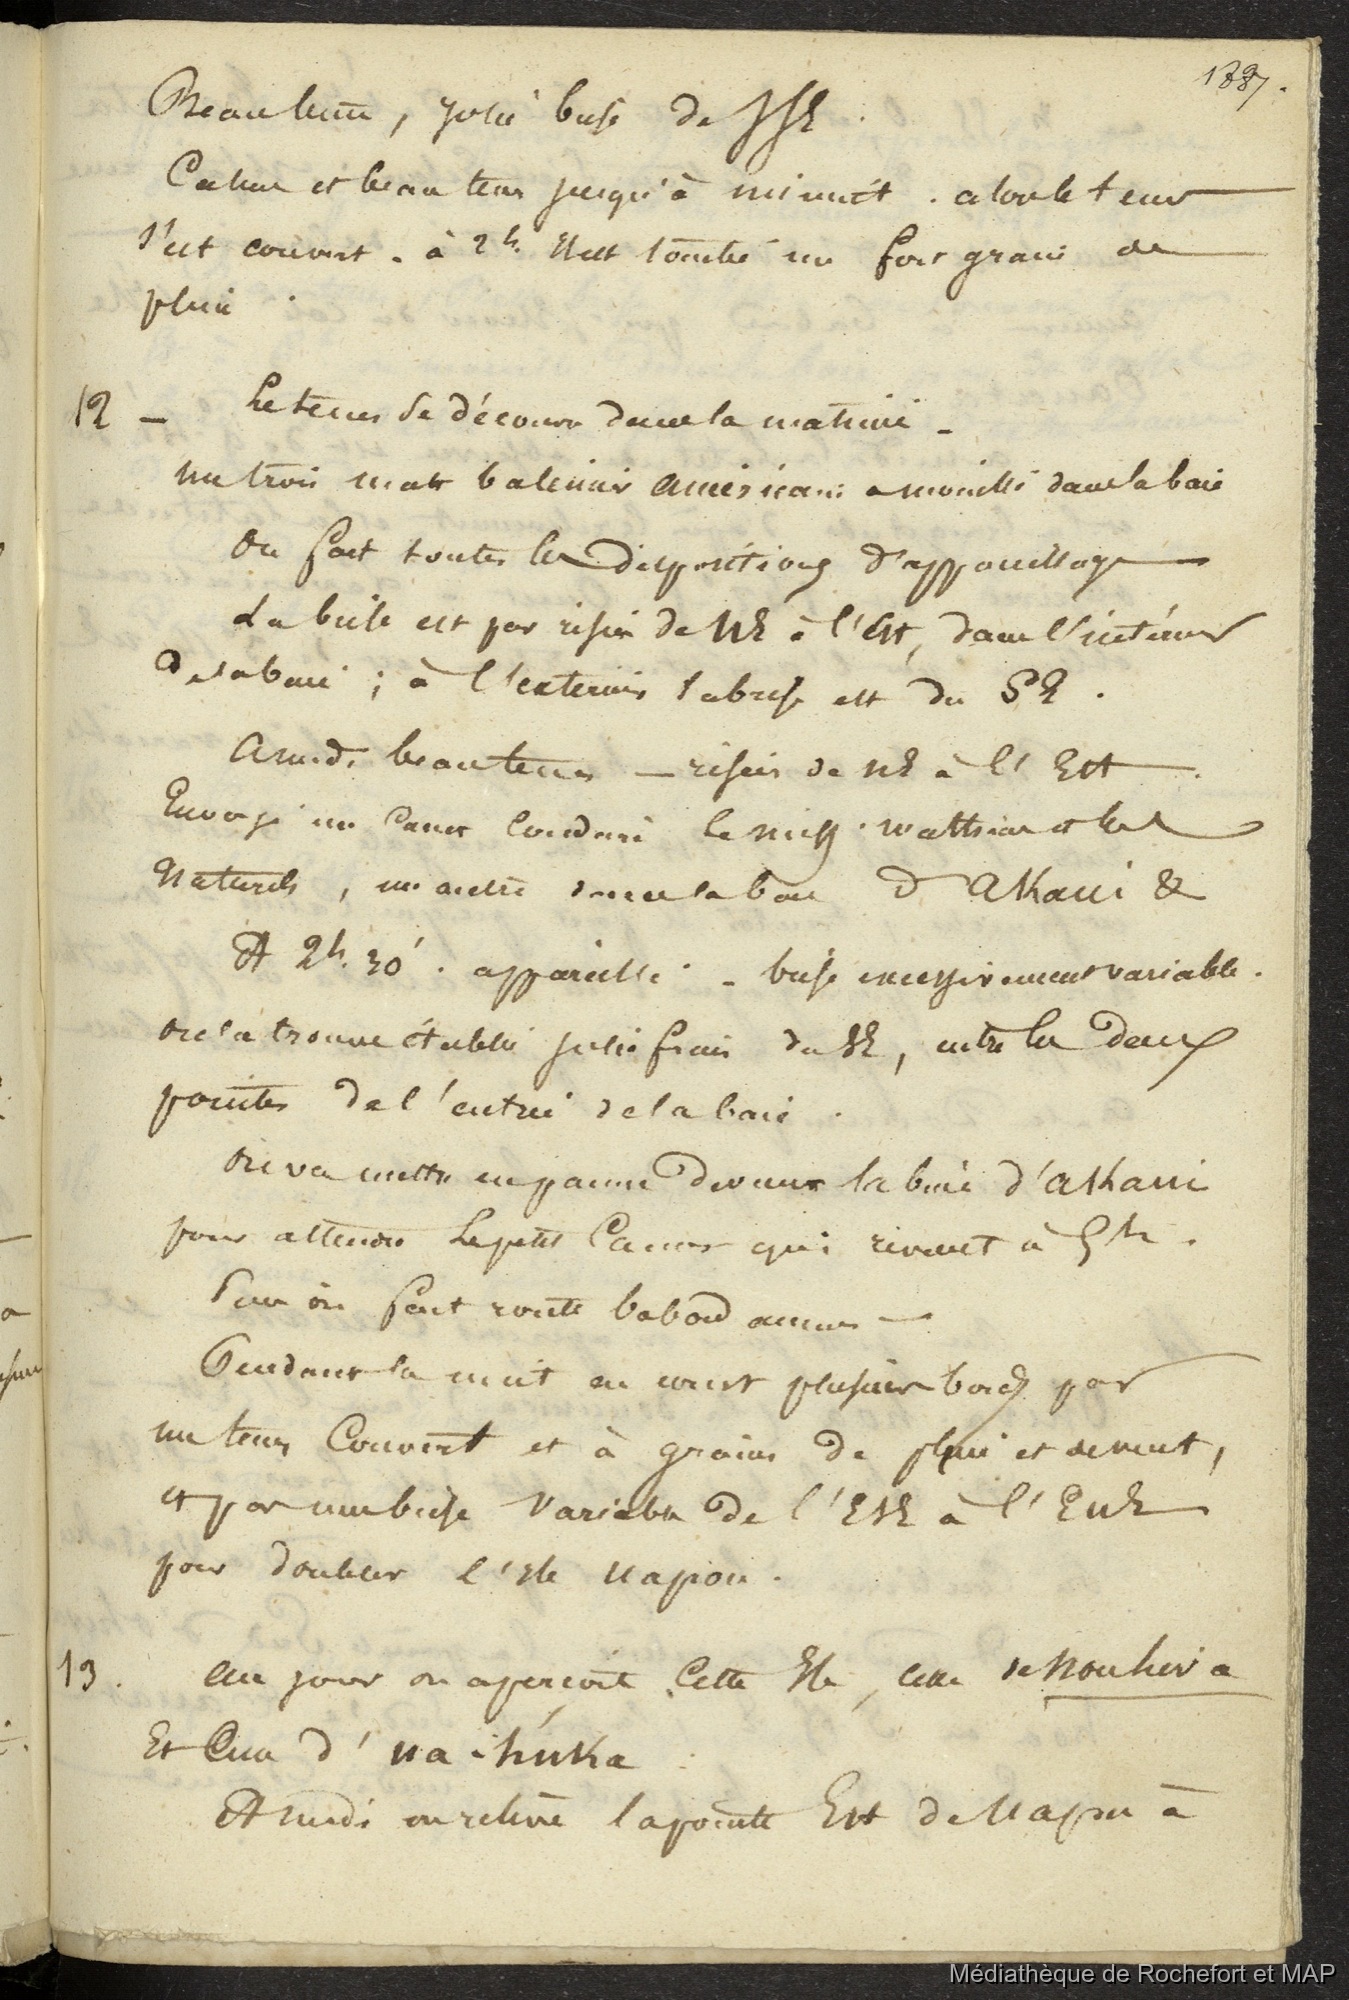 137.
Beau tems, jolie brise de SSE.
Calme et beau tems jusqu'à minuit. alors le tems
s'est couvert. à 2h. Il est tombé un fort grain de
pluie.
12 — Le tems se découvre dans la matinée —
un trois mats baleinier américain a mouillé dans la baie
On fait toutes les dispositions d'appareillage
La brise est par risées de NE à l'Est, dans l'intérieur
de la baie ; à l'exterieur la brise est du SE.
A midi beau tems — risées de NE à l'Est.
Envoyé un canot conduire le et les
naturels, un autre dans la baie d'Akani &
A 2h. 30'. appareillé. — brise excessivement variable.
on la trouve établie jolie frais du SE, entre les deux
pointes de l'entrée de la baie.
On va mettre en panne devant la baie d'Akani
pour attendre le petit canot qui revient à 5h.
Puis on fait route babord amures —
Pendant la nuit on court plusieurs bords par
un tems couvert et à grains de pluie et de vent,
et par une brise variable de l'ESE à l'ENE
pour doubler l'Ile Uapou.
13. Au jour on aperçoit cette Ile, celle de Nouhiva
Et celle d'Ua-húka.
A midi on relève la pointe Est de Uapou à
Médiathèque de Rochefort et MAP